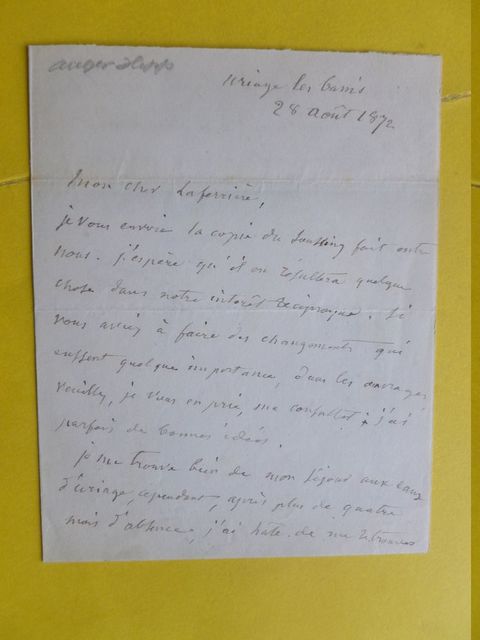 uriage les bains
28 août 1872
Mon cher Laferrière,
je vous envoie la copie du fait entre
nous. j'espère qu'il en résultera quelque
chose dans notre intérêt réciproque. Si
vous aviez à faire des changements qui
eussent quelque importance, dans les ouvrages
veuillez, je vous en prie, me consulter; j'ai
parfois de bonnes idées.
je me trouve bien de mon séjour aux eaux
d'uriage, cependant, après plus de quatre
mois d'absence, j'ai hâte de me retrouver